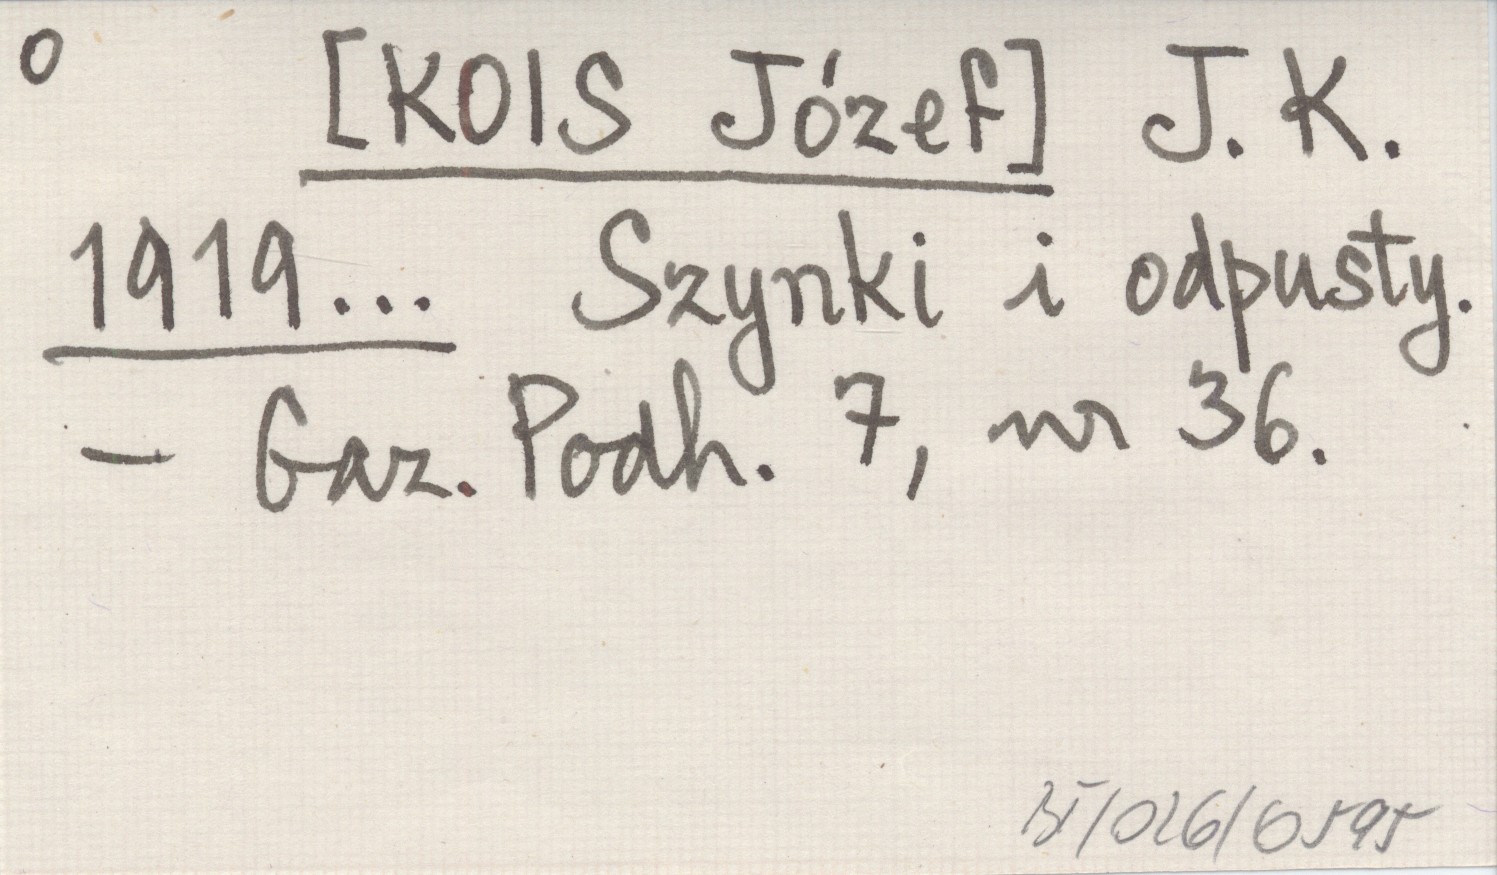 o [KOIS Józef] J. K.
1919... Szynki i odpusty.
– Gaz. Podh. 7, nr 36.
BŁ/026/0595